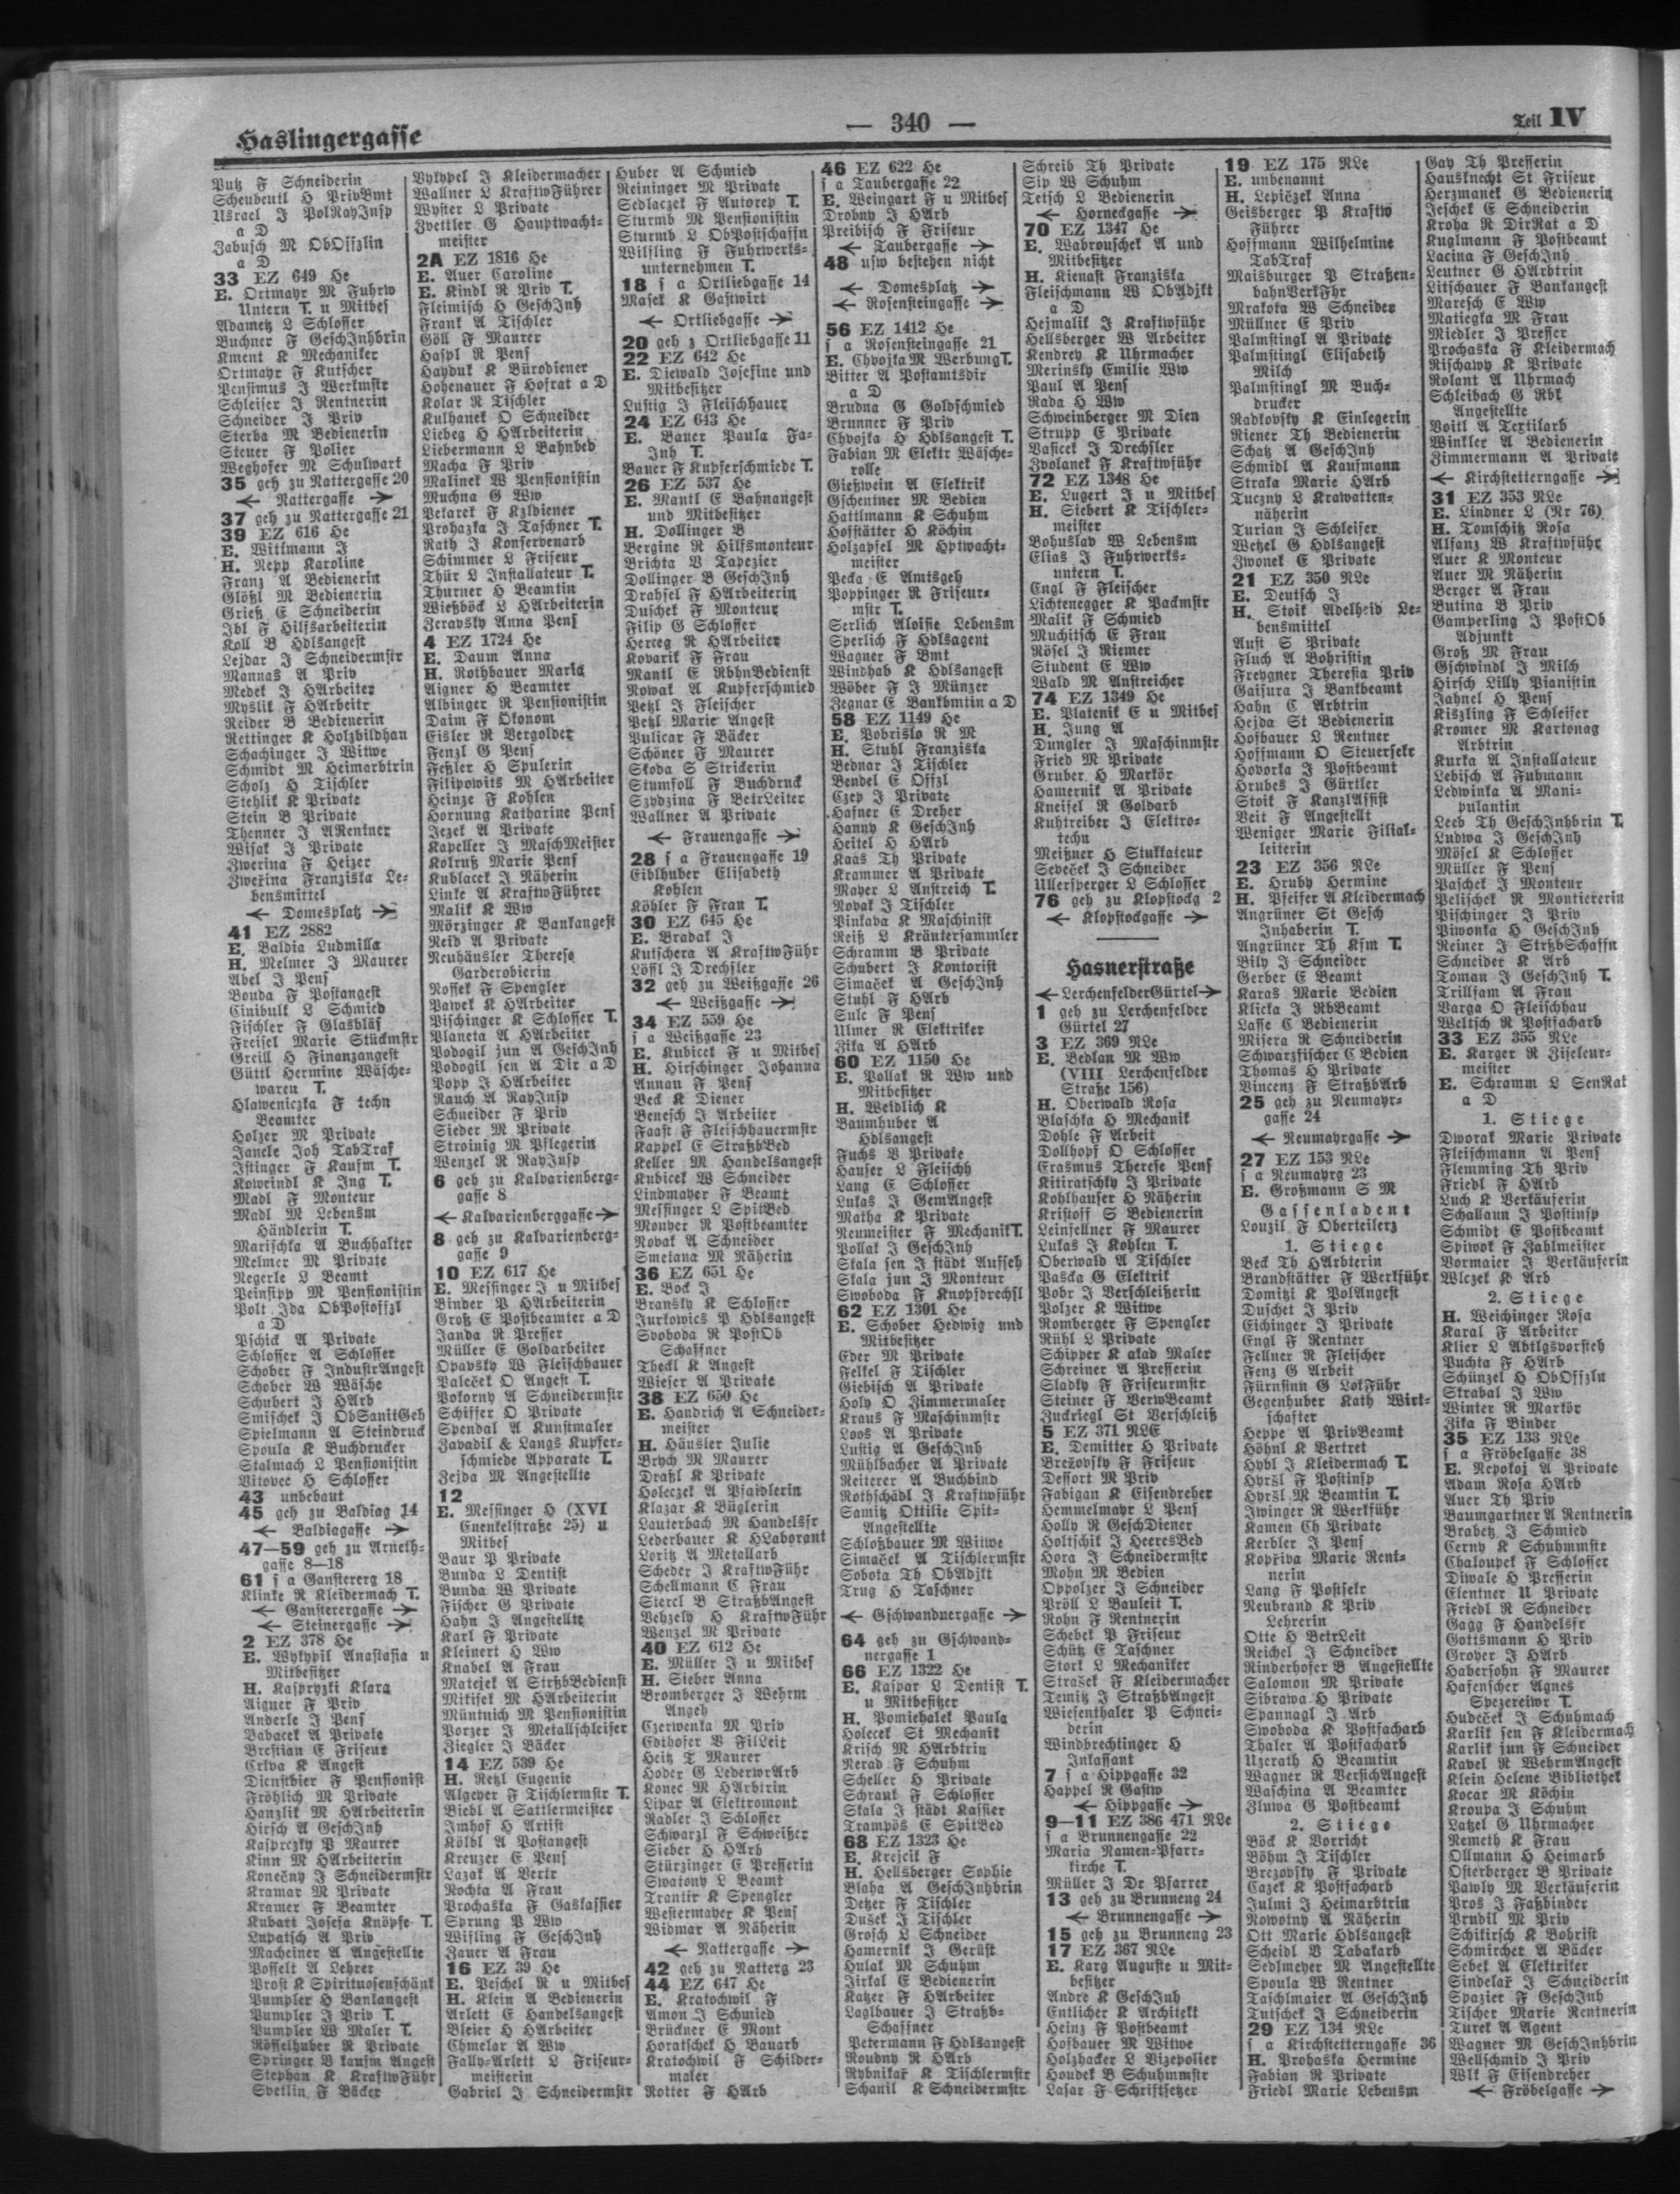 Haslingergasse
— 340 —
Teil IV
Putz F Schneiderin
Scheubeutl H PrivBmt
Usrael J PolRayInsp
a D
Zabusch M ObOffzlin
a D
33 EZ 649 He
E. Ortmayr M Fuhrw
Untern T. u Mitbes
Adametz L Schlosser
Buchner F GeschInhbrin
Kment K Mechaniker
Ortmayr F Kutscher
Pensimus J Werkmstr
Schleifer J Rentnerin
Schneider J Priv
Sterba M Bedienerin
Steuer F Polier
Weghofer M Schulwart
35 geh zu Nattergasse 20
← Nattergasse →
37 geh zu Nattergasse 21
39 EZ 616 He
E. Wittmann J
H. Nepp Karoline
Franz A Bedienerin
Glößl M Bedienerin
Grieß E Schneiderin
Ibl F Hilfsarbeiterin
Koll B Hdlsangest
Lejdar J Schneidermstr
Mannas A Priv
Medek J HArbeiter
Myslik F HArbeitr
Reider B Bedienerin
Rettinger K Holzbildhau
Schachinger J Witwe
Schmidt M Heimarbtrin
Scholz H Tischler
Stehlik K Private
Stein B Private
Thenner J ARentner
Wisak J Private
Zwerina F Heizer
Zweřina Franziska Le-
bensmittel
← Domesplatz →
41 EZ 2882
E. Baldia Ludmilla
H. Melmer J Maurer
Abel J Pens
Bonda F Postangest
Cinibulk L Schmied
Fischler F Glasbläs
Freisel Marie Stückmstr
Greill H Finanzangest
Güttl Hermine Wäsche-
waren T.
Hlaweniczka F techn
Beamter
Holzer M Private
Janele Joh TabTraf
Istinger F Kaufm T.
Koweindl K Ing T.
Madl F Monteur
Madl M Lebensm
Händlerin T.
Marischka A Buchhalter
Melmer M Private
Negerle L Beamt
Peinsipp M Pensionistin
Polt Ida ObPostoffzl
a D
Pschick A Private
Schlosser A Schlosser
Schober F IndustrAngest
Schober W Wäsche
Schubert J HArb
Smischek J ObSanitGeh
Spielmann A Steindruck
Spoula K Buchdrucker
Stalmach L Pensionistin
Vitovec H Schlosser
43 unbebaut
45 geh zu Baldiag 14
← Baldiagasse →
47—59 geh zu Arneth-
gasse 8—18
61 s a Gansterergasse 18
Klinke R Kleidermach T.
← Ganstererergasse →
← Steinergasse →
2 EZ 378 He
E. Wykypil Anastasia u
Mitbesitzer
H. Kaspryzki Klara
Aigner F Priv
Anderle J Pens
Babacek A Private
Brestian E Friseur
Crlva K Angest
Dienstbier F Pensionist
Fröhlich M Private
Hanzlik M HArbeiterin
Hirsch A GeschInh
Kasprezky P Maurer
Kinn M HArbeiterin
Konečny J Schneidermstr
Kramar M Private
Kramer F Beamter
Kubart Josefa Knöpfe T.
Lupatsch A Priv
Macheiner A Angestellte
Posselt A Lehrer
Prost K Spirituosenschänk
Pumpler H Bankangest
Pumpler J Priv T.
Pumpler W Maler T.
Rösselhuber R Private
Springer B kaufm Angest
Stephan K KraftwFühr
Svetlin F Bäcker
Vykypel J Kleidermacher
Wallner L KraftwFührer
Wyster L Private
Zvettler G Hauptwacht-
meister
2A EZ 1816 He
E. Auer Caroline
E. Kindl R Priv T.
Fleimisch H GeschInh
Frank A Tischler
Göll F Maurer
Haspl R Pens
Hayduk K Bürodiener
Hohenauer F Hofrat a D
Kolar R Tischler
Kulhanek O Schneider
Liebeg H HArbeiterin
Liebermann L Bahnbed
Macha F Priv
Malinek W Pensionistin
Muchna G Ww
Pekarek F Kzldiener
Prohazka J Taschner T.
Rath J Konservenarb
Schimmer L Friseur
Thür L Installateur T.
Thurner H Beamtin
Wießböck L HArbeiterin
Zeravsky Anna Pens
4 EZ 1724 He
E. Daum Anna
H. Rothbauer Maria
Aigner H Beamter
Albinger R Pensionistin
Daim F Ökonom
Eisler R Vergolder
Fenzl G Pens
Feßler H Spulerin
Filipowits M HArbeiter
Heinze F Kohlen
Hornung Katharine Pens
Jezek A Private
Kapeller J MaschMeister
Kolruß Marie Pens
Kublacek J Näherin
Linke A KraftwFührer
Malik K Ww
Mörzinger K Bankangest
Neid A Private
Neuhäusler Therese
Garderobierin
Nossek F Spengler
Pawek K HArbeiter
Pischinger K Schlosser T.
Planeta A HArbeiter
Podogil jun A GeschInh
Podogil sen A Dir a D
Popp J HArbeiter
Rauch A RayInsp
Schneider F Priv
Sieder M Private
Stroinig M Pflegerin
Wenzel R RayInsp
6 geh zu Kalvarienberg-
gasse 8
← Kalvarienberggasse →
8 geh zu Kalvarienberg-
gasse 9
10 EZ 617 He
E. Messinger J u Mitbes
Binder P HArbeiterin
Groß E Postbeamter a D
Janda R Presser
Müller E Goldarbeiter
Opavsky W Fleischhauer
Paleček O Angest T.
Pokorny A Schneidermstr
Schiffer O Private
Spendal A Kunstmaler
Zavadil & Langs Kupfer-
schmiede Apparate T.
Zejda M Angestellte
12
E. Messinger H (XVI
Enenkelstraße 25) u
Mitbes
Baur P Private
Bunda L Dentist
Bunda W Private
Fischer G Private
Hahn J Angestellte
Karl F Private
Kleinert H Ww
Knabel A Frau
Matejek A StrßbBedienst
Mitisek M HArbeiterin
Müntnich M Pensionistin
Porzer J Metallschleifer
Ziegler J Bäcker
14 EZ 539 He
H. Netzl Eugenie
Algeyer F Tischlermstr T.
Biebl A Sattlermeister
Imhof H Artist
Kölbl A Postangest
Kreuzer E Pens
Lazak A Vertr
Nochta A Frau
Prochaska F Gaskassier
Sprung P Ww
Wißling F GeschInh
Zauer A Frau
16 EZ 39 He
E. Peschel R u Mitbes
H. Klein A Bedienerin
Arlett E Handelsangest
Bleier H HArbeiter
Chmelar A Ww
Fally-Arlett L Friseur-
meisterin
Gabriel J Schneidermstr
Huber A Schmied
Reininger M Private
Sedlaczek F Autorep T.
Sturmb M Pensionistin
Sturmb L ObPostschaffn
Wilfling F Fuhrwerks-
unternehmen T.
18 s a Ortliebgasse 14
Masek K Gastwirt
← Ortliebgasse →
20 geh z Ortliebgasse 11
22 EZ 642 He
E. Diewald Josefine und
Mitbesitzer
Lustig J Fleischhauer
24 EZ 643 He
E. Bauer Paula Fa-
Inh T.
Bauer F Kupferschmiede T.
26 EZ 537 He
E. Mantl E Bahnangest
und Mitbesitzer
H. Dollinger B
Bergine R Hilfsmonteur
Brichta B Tapezier
Dollinger B GeschInh
Drahsel F HArbeiterin
Duschek F Monteur
Filip G Schlosser
Herceg R HArbeiter
Kovarik F Frau
Mantl E RbhnBedienst
Nowak A Kupferschmied
Petzl J Fleischer
Petzl Marie Angest
Pulicar F Bäcker
Schöner F Maurer
Skoda S Strickerin
Stumfoll F Buchdruck
Szydzina F BetrLeiter
Wallner A Private
← Frauengasse →
28 s a Frauengasse 19
Eiblhuber Elisabeth
Kohlen
Köhler F Frau T.
30 EZ 645 He
E. Bradak J
Kutschera A KraftwFühr
Löffl J Drechsler
32 geh zu Weißgasse 26
← Weißgasse →
34 EZ 559 He
s a Weißgasse 23
E. Kubicek F u Mitbes
H. Hirschinger Johanna
Annau F Pens
Beck K Diener
Benesch J Arbeiter
Faast F Fleischhauermstr
Kappel E StraßbBed
Keller M Handelsangest
Kubicek W Schneider
Lindmayer F Beamt
Messinger L SpitBed
Monyer R Postbeamter
Novak A Schneider
Smetana M Näherin
36 EZ 651 He
E. Bock J
Bransky K Schlosser
Jurkowics P Hdlsangest
Svoboda R PostOb
Schaffner
Theckl K Angest
Wieser A Private
38 EZ 650 He
E. Handrich A Schneider-
meister
H. Häusler Julie
Brych M Maurer
Draßl K Private
Holeczek A Pfaidlerin
Klazar K Büglerin
Lauterbach M Handelsfr
Lederbauer K HLaborant
Loritz A Metallarb
Scheder J KraftwFühr
Schellmann C Frau
Sierel B StraßbAngest
Vehzely H KraftwFühr
Wenzel M Private
40 EZ 612 He
E. Müller J u Mitbes
H. Sieber Anna
Bromberger J Wehrm
Angeh
Czerwenka M Priv
Edthofer B FilLeit
Heitz T Maurer
Hoder G LederwrArb
Konec M HArbtrin
Lipar A Elektromont
Nadler J Schlosser
Schwarzl F Schweißer
Sieber H HArb
Stürzinger E Presserin
Swatony L Beamt
Trantir K Spengler
Westermayer K Pens
Widmar A Näherin
← Nattergasse →
42 geh zu Natterg 23
44 EZ 647 He
E. Kratochwil F
Amon J Schmied
Brückner E Mont
Horatschek H Bauarb
Kratochwil F Schilder-
maler
Rotter F HArb
46 EZ 622 He
s a Taubergasse 22
E. Weingart F u Mitbes
Drobny J HArb
Preibisch F Friseur
← Taubergasse →
48 usw bestehen nicht
← Domesplatz →
← Rosensteingasse →
56 EZ 1412 He
s a Rosensteingasse 21
E. Chvojka M Werbung T.
Bitter A Postamtsdir
a D
Brudna G Goldschmied
Brunner F Priv
Chvojka H Hdlsangest T.
Fabian M Elektr Wäsche-
rolle
Gießwein A Elektrik
Gschentner M Bedien
Hattlmann K Schuhm
Hofstätter H Köchin
Holzapfel M Hptwacht-
meister
Pecka E Amtsgeh
Poppinger R Friseur-
mstr T.
Serlich Aloisie Lebensm
Sperlich F Hdlsagent
Wagner F Bmt
Windhab K Hdlsangest
Wöber F J Münzer
Zegnar E Bankbmtin a D
58 EZ 1149 He
E. Pobrislo R M
H. Stuhl Franziska
Bednar J Tischler
Bendel E Offzl
Czep J Private
Hafner E Dreher
Hanny K GeschInh
Heitel H HArb
Kaas Th Private
Krammer A Private
Mayer L Anstreich T.
Novak J Tischler
Pinkava K Maschinist
Reiß L Kräutersammler
Schramm B Private
Schubert J Kontorist
Simaček A GeschInh
Stuhl F HArb
Sulc F Pens
Ulmer R Elektriker
Zika A HArb
60 EZ 1150 He
E. Pollak R Ww und
Mitbesitzer
H. Weidlich K
Baumhuber A
Hdlsangest
Fuchs B Private
Hauser L Fleischh
Lang E Schlosser
Lukas J GemAngest
Matha K Private
Neumeister F Mechanik T.
Pollak J GeschInh
Skala sen J städt Aufseh
Skala jun J Monteur
Swoboda F Knopfdrechsl
62 EZ 1301 He
E. Schober Hedwig und
Mitbesitzer
Eder M Private
Felkel F Tischler
Giebisch A Private
Holy O Zimmermaler
Kraus F Maschinmstr
Loos A Private
Lustig A GeschInh
Mühlbacher A Private
Reiterer A Buchbind
Rothschädl J Kraftwführ
Samitz Ottilie Spit-
Angestellte
Schloßbauer M Witwe
Simaček A Tischlermstr
Sobota Th ObAdjkt
Trug H Taschner
← Gschwandnergasse →
64 geh zu Gschwand-
nergasse 1
66 EZ 1322 He
E. Kaspar L Dentist T.
u Mitbesitzer
H. Pomiehalek Paula
Holecek St Mechanik
Krisch M HArbtrin
Nerad F Schuhm
Scheller H Private
Schrauk F Schlosser
Skala J städt Kassier
Trampös E SpitBed
68 EZ 1323 He
E. Krejcik F
H. Hellsberger Sophie
Blaha A GeschInhbrin
Detzer F Tischler
Dušek J Tischler
Grosch L Schneider
Hamernik J Gerüst
Hulak M Schuhm
Jirkal E Bedienerin
Katzer F HArbeiter
Laglbauer J Straßb-
Schaffner
Petermann F Hdlsangest
Roudny R HArb
Rybnikař K Tischlermstr
Schanil K Schneidermstr
Schreib Th Private
Sip W Schuhm
Tetsch L Bedienerin
← Horneckgasse →
70 EZ 1347 He
E. Wabrouschek A und
Mitbesitzer
H. Kienast Franziska
Fleischmann W ObAdjkt
a D
Hejmalik J Kraftwführ
Hellsberger W Arbeiter
Kendrey K Uhrmacher
Merinsky Emilie Ww
Paul A Pens
Rada H Ww
Schweinberger M Dien
Strupp E Private
Vasicek J Drechsler
Zvolanek F Kraftwführ
72 EZ 1348 He
E. Lugert J u Mitbes
H. Siebert K Tischler-
meister
Bohuslav W Lebensm
Elias J Fuhrwerks-
untern T.
Engl F Fleischer
Lichtenegger K Packmstr
Malik F Schmied
Muchitsch E Frau
Rösel J Riemer
Student E Ww
Wald M Anstreicher
74 EZ 1349 He
E. Platenik E u Mitbes
H. Jung A
Dungler J Maschinmstr
Fried M Private
Gruber H Markör
Hamernik A Private
Kneisel R Goldarb
Kuhtreiber J Elektro-
techn
Meißner H Stukkateur
Sebeček J Schneider
Ullersperger L Schlosser
76 geh zu Klopstockg 2
← Klopstockgasse →
Hasnerstraße
← Lerchenfelder Gürtel →
1 geh zu Lerchenfelder
Gürtel 27
3 EZ 369 NLe
E. Bedlan M Ww
(VIII Lerchenfelder
Straße 156)
H. Oberwald Rosa
Blaschka H Mechanik
Dohle F Arbeit
Dollhopf O Schlosser
Erasmus Therese Pens
Kitiratschky J Private
Kohlhauser H Näherin
Kristoff S Bedienerin
Leinfellner F Maurer
Lukas J Kohlen T.
Oberwald A Tischler
Pascka G Elektrik
Pobr J Verschleißerin
Polzer K Witwe
Romberger F Spengler
Rühl L Private
Schipper K akad Maler
Schreiner A Presserin
Sladky F Friseurmstr
Steiner F VerwBeamt
Zuckriegl St Verschleiß
5 EZ 371 NLE
E. Demitter H Private
Brežovsky F Friseur
Dessort M Priv
Fabigan K Eisendreher
Hemmelmayr L Pens
Holly R GeschDiener
Holtschik J HeeresBed
Hora J Schneidermstr
Mohn M Bedien
Oppolzer J Schneider
Pröll L Bauleit T.
Rohn F Rentnerin
Schebek P Friseur
Schütz E Taschner
Stork L Mechaniker
Strašek F Kleidermacher
Temitz J StraßbAngest
Wiesenthaler P Schnei-
derin
Windbrechtinger H
Inkassant
7 s a Hippgasse 32
Happel R Gastw
← Hippgasse →
9—11 EZ 386 471 NLe
s a Brunnengasse 22
Maria Namen-Pfarr-
kirche T.
Müller J Dr Pfarrer
13 geh zu Brunneng 24
← Brunnengasse →
15 geh zu Brunneng 23
17 EZ 367 NLe
E. Karg Auguste u Mit-
besitzer
Andre K GeschInh
Entlicher K Architekt
Heinz F Postbeamt
Hofbauer M Witwe
Holzhacker L Vizepolier
Houdek B Schuhmstr
Lasar F Schriftsetzer
19 EZ 175 NLe
E. unbenannt
H. Lepiczek Anna
Geisberger P Kraftw
Führer
Hoffmann Wilhelmine
TabTraf
Maisburger P Straßen-
bahnVerkFhr
Mrakota W Schneider
Müllner E Priv
Palmstingl A Private
Palmstingl Elisabeth
Milch
Palmstingl M Buch-
drucker
Radlovsky K Einlegerin
Riener Th Bedienerin
Schatz A GeschInh
Schmidl A Kaufmann
Straka Marie HArb
Tuczny L Krawatten-
näherin
Turian J Schleifer
Wetzel G Hdlsangest
Zwonek E Private
21 EZ 350 NLe
E. Deutsch J
H. Stoik Adelheid Le-
bensmittel
Aust S Private
Fluch A Bohristin
Freygner Theresia Priv
Gaisura J Bankbeamt
Hahn C Arbtrin
Hejda St Bedienerin
Hofbauer L Rentner
Hoffmann O Steuersekr
Hovorka J Postbeamt
Hrubes J Gürtler
Stoik F KanzlAssist
Veit F Angestellt
Weniger Marie Filial-
leiterin
23 EZ 356 NLe
E. Hruby Hermine
H. Pfeifer A Kleidermach
Angrüner St Gesch
Inhaberin T.
Angrüner Th Kfm T.
Bily J Schneider
Gerber E Beamt
Karas Marie Bedien
Klicka J RbBeamt
Lasse C Bedienerin
Misera R Schneiderin
Schwarzfischer C Bedien
Thomas H Private
Vincenz F StraßbArb
25 geh zu Neumayr-
gasse 24
← Neumayrgasse →
27 EZ 153 NLe
s a Neumayrg 23
E. Großmann S M
Gassenladen:
Louzil F Oberteilerz
1. Stiege
Beck Th HArbterin
Brandstätter F Werkführ
Domitzi K PolAngest
Duschet J Priv
Eichinger J Private
Engl F Rentner
Fellner R Fleischer
Fenz G Arbeit
Fürnsinn G LokFühr
Gegenhuber Kath Wirt-
schafter
Heppe A PrivBeamt
Höhnl K Vertret
Hybl J Kleidermach T.
Hyršl F Postinsp
Hyršl M Beamtin T.
Iwinger R Werkführ
Kamen Ch Private
Kerbler J Pens
Kopřiva Marie Rent-
nerin
Lang F Postsekr
Neubrand K Priv
Lehrerin
Otte H BetrLeit
Reichel J Schneider
Rinderhofer B Angestellte
Salomon M Private
Sibrawa H Private
Spannagl J Arb
Swoboda K Postfacharb
Thaler A Postfacharb
Uzerath H Beamtin
Wagner R VersichAngest
Waschina A Beamter
Zluwa G Postbeamt
2. Stiege
Böck K Vorricht
Böhm J Tischler
Brezovsky F Private
Cazek K Postfacharb
Julmi J Heimarbtrin
Nowotny A Näherin
Ott Marie Hdlsangest
Scheidl B Tabakarb
Sedlmeyer M Angestellte
Spoula W Rentner
Taschlmaier A GeschInh
Tutschek J Schneiderin
29 EZ 134 NLe
s a Kirchstetterngasse 36
H. Prohaska Hermine
Fabian R Private
Friedl Marie Lebensm
Gay Th Presserin
Hausknecht St Friseur
Herzmanek G Bedienerin
Jeschek E Schneiderin
Kroha R DirRat a D
Kuglmann F Postbeamt
Lacina F GeschInh
Leutner G HArbtrin
Litschauer F Bankangest
Maresch E Ww
Matiegka M Frau
Miedler J Presser
Prochaska F Kleidermach
Rischawy K Private
Rolant A Uhrmach
Schleibach G Rbl
Angestellte
Voitl A Textilarb
Winkler A Bedienerin
Zimmermann A Private
← Kirchstetterngasse →
31 EZ 353 NLe
E. Lindner L (Nr 76)
H. Tomschitz Rosa
Alsanz W Kraftwführ
Auer K Monteur
Auer M Näherin
Berger A Frau
Butina B Priv
Gamperling J PostOb
Adjunkt
Groß M Frau
Gschwindl J Milch
Hirsch Lilly Pianistin
Jahnel H Pens
Kiszling F Schleifer
Kromer M Kartonag
Arbtrin
Kurka A Installateur
Lebisch A Fuhmann
Ledwinka A Mani-
pulantin
Leeb Th GeschInhbrin T.
Ludwa J GeschInh
Mösel K Schlosser
Müller F Pens
Paschek J Monteur
Pelischek R Montiererin
Pischinger J Priv
Piwonka H GeschInh
Reiner J StrßbSchaffn
Schneider K Arb
Toman J GeschInh T.
Trillsam A Frau
Varga O Fleischhau
Weltsch R Postfacharb
33 EZ 355 NLe
E. Karger R Ziseleur-
meister
E. Schramm L SenRat
a D
1. Stiege
Dworak Marie Private
Fleischmann A Pens
Flemming Th Priv
Friedl F HArb
Luch K Verkäuferin
Schallaun J Postinsp
Schmidt E Postbeamt
Spiwok F Zahlmeister
Vormaier J Verkäuferin
Wlczek K Arb
2. Stiege
H. Weichinger Rosa
Karal F Arbeiter
Klier L Abtlgsvorsteh
Puchta F HArb
Schünzel H ObOffzln
Strabal J Ww
Winter R Markör
Zika F Binder
35 EZ 133 NLe
s a Fröbelgasse 38
E. Nepokoj A Private
Adam Rosa HArb
Auer Th Priv
Baumgartner A Rentnerin
Brabetz J Schmied
Cerny K Schuhmmstr
Chaloupek F Schlosser
Diwale H Presserin
Elentner U Private
Friedl R Schneider
Gagg F Handelsfr
Gottsmann H Priv
Groyer J HArb
Habersohn F Maurer
Hasenscher Agnes
Spezereiwr T.
Hudeček J Schuhmach
Karlik sen F Kleidermach
Karlik jun F Schneider
Kavel R WehrmAngest
Klein Helene Bibliothek
Kocar M Köchin
Kroupa J Schuhm
Latzel G Uhrmacher
Nemeth K Frau
Ollmann H Heimarb
Osterberger B Private
Pawly M Verkäuferin
Pros J Faßbinder
Prudil M Priv
Schikirsch K Bohrist
Schmircher A Bäcker
Sebek A Elektriker
Sindelař J Schneiderin
Spazier F GeschInh
Tischer Marie Rentnerin
Turek A Agent
Wagner M GeschInhbrin
Wellschmid J Priv
Wlk F Eisendreher
← Fröbelgasse →